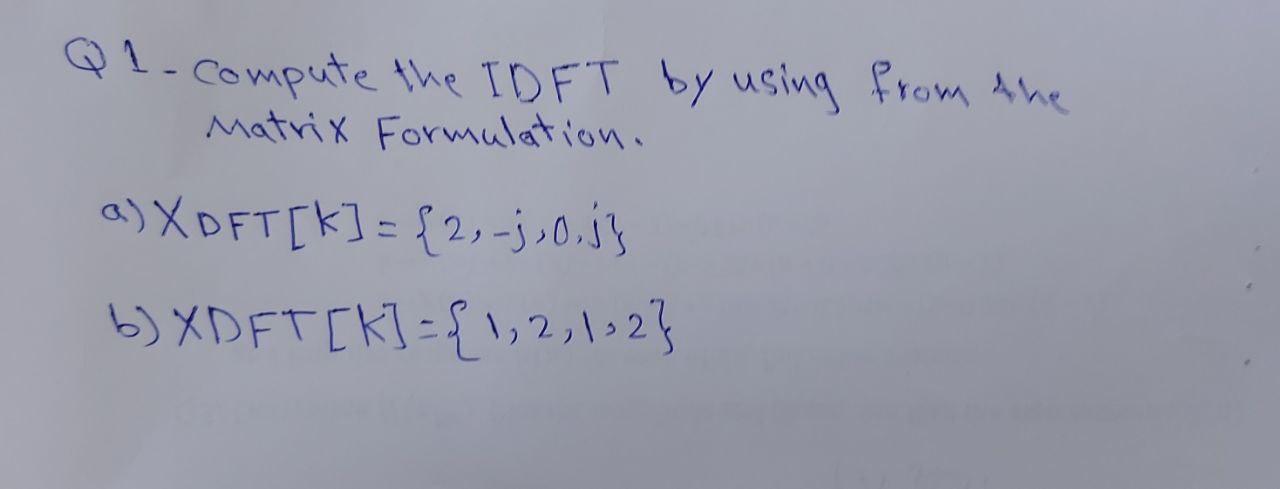 Q1-Compute the IDFT by using from the
Matrix Formulation.
a) XDFT[K]={2,-j,0,j}
b) XDFT[K]={1,2,1,2}